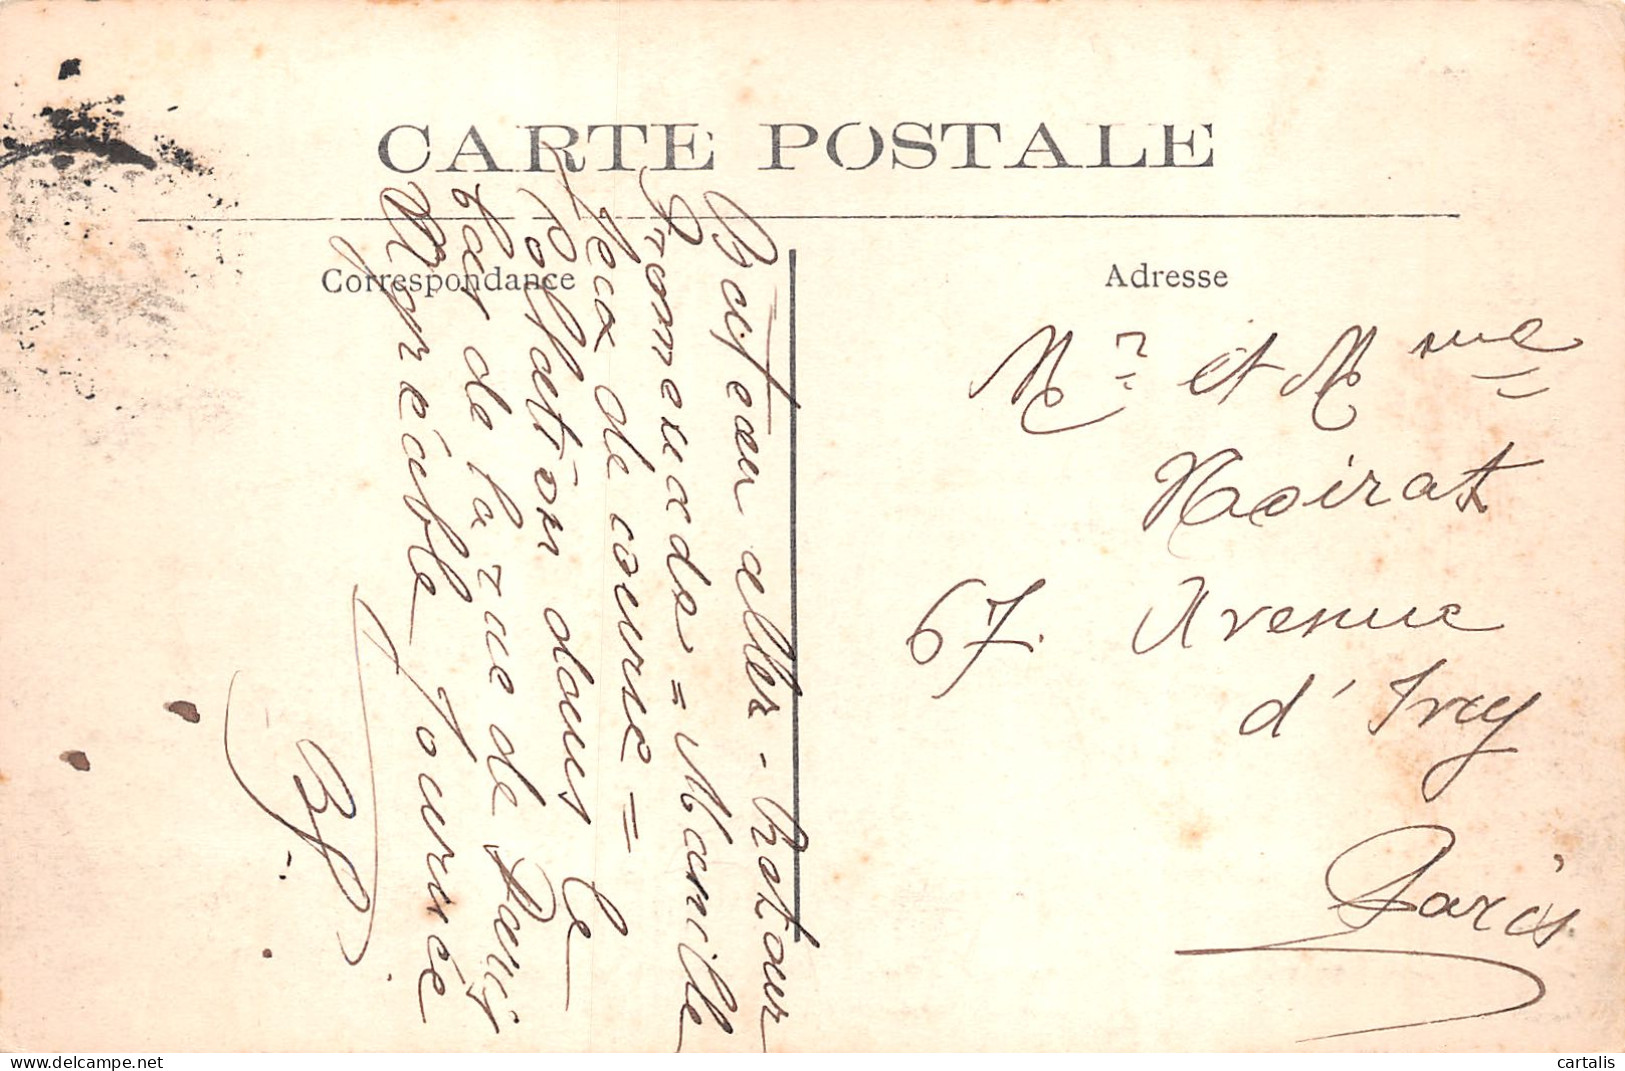 CARTE POSTALE
Correspondance
Adresse
Bateau aller-Retour
Promenade = Manille
Jeux de course =
Collation dans le
bas de la rue de Paris
Agréable journée
M.r et M.me
Noirat
67. Avenue
d'Ivry
Paris
cartalis